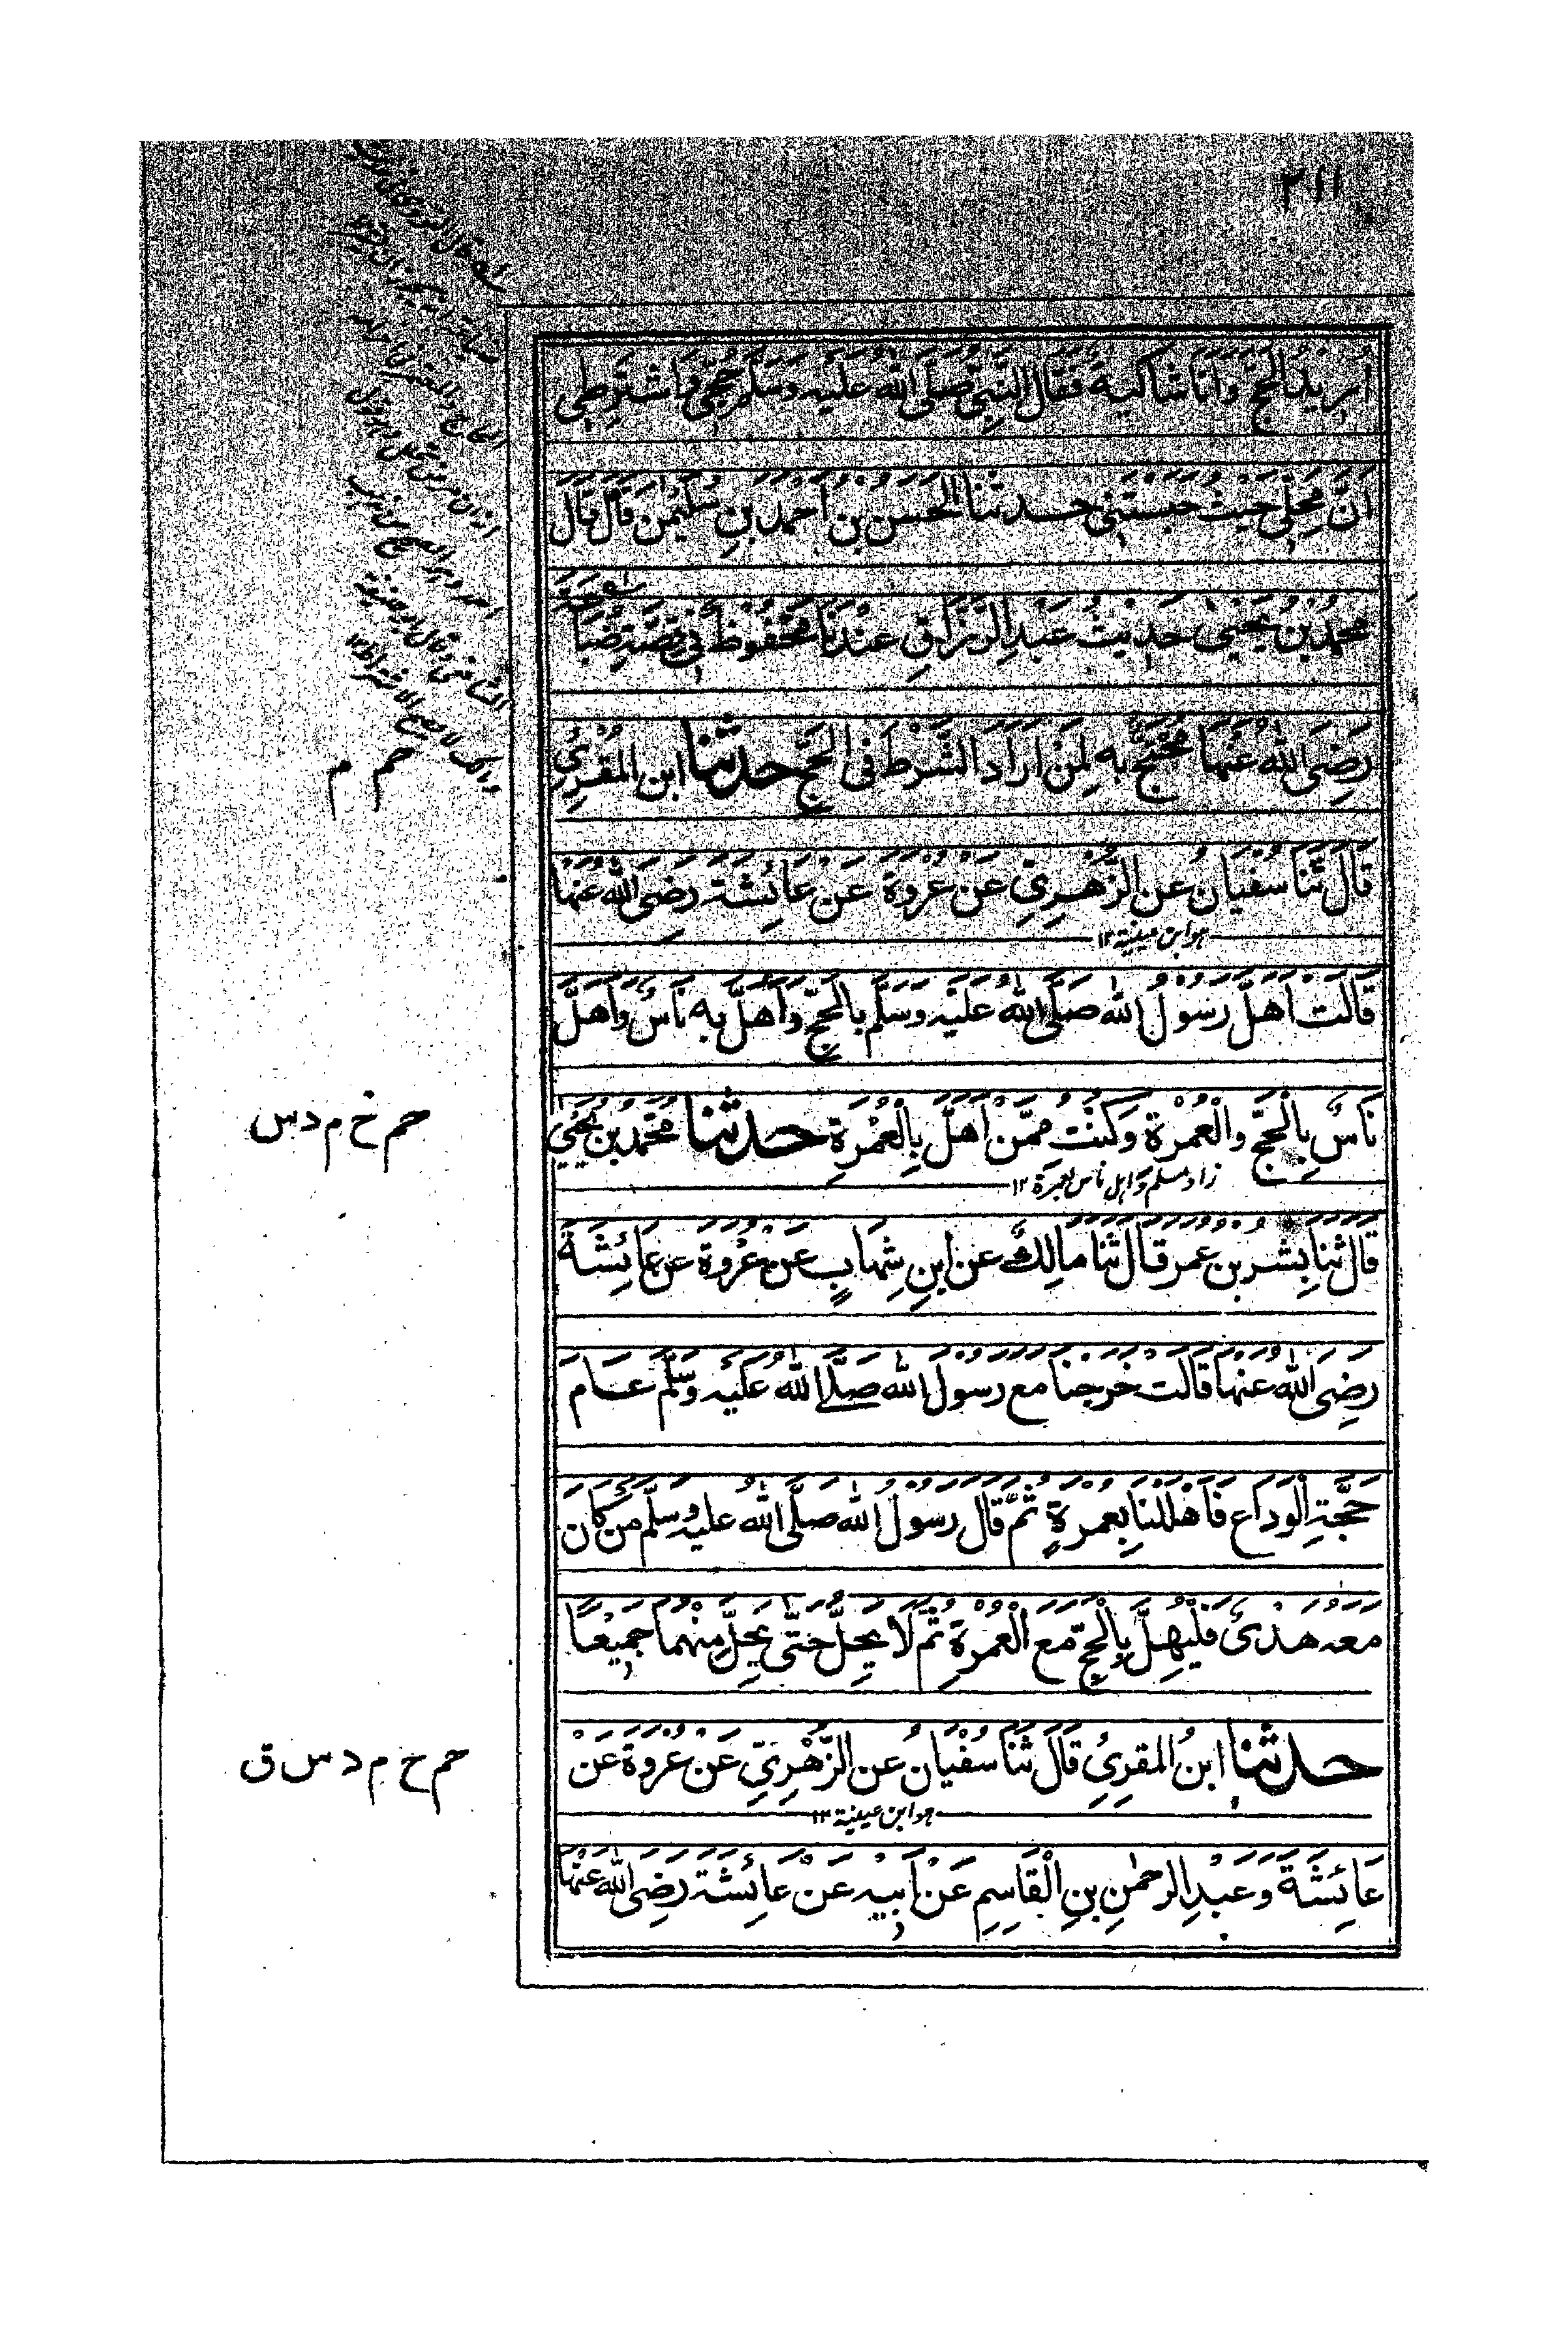 ٢١١
اُرِيْدُ الْحَجَّ وَاَنَا شَاكِيَةٌ فَقَالَ النَّبِيُّ صَلَّى اللهُ عَلَيْهِ وَسَلَّمَ حُجِّي وَاشْتَرِطِي
اَنَّ مَحِلِّي حَيْثُ حَبَسْتَنِي حدثنا الْحَسَنُ بْنُ اَحْمَدَ بْنِ سُلَيْمٰنَ قَالَ قَالَ
مُحَمَّدُ بْنُ يَحْيٰى حَدِيْثُ عَبْدِ الرَّزَّاقِ عِنْدَنَا مَحْفُوْظٌ فِي قِصَّةِ ضُبَا
رَضِيَ اللهُ عَنْهَا مُحْتَجٌّ بِهِ لِمَنْ اَرَادَ الشَّرْطَ فِي الْحَجِّ حدثنا ابن الْمُقْرِئُ
حم م
قَالَ ثَنَا سُفْيَانُ عَنِ الزُّهْرِيِّ عَنْ عُرْوَةَ عَنْ عَائِشَةَ رَضِيَ اللهُ عَنْهَا
هو ابن عيينة ١٢
قَالَتْ اَهَلَّ رَسُوْلُ اللهِ صَلَّى اللهُ عَلَيْهِ وَسَلَّمَ بِالْحَجِّ وَاَهَلَّ بِهِ نَاسٌ وَاَهَلَّ
نَاسٌ بِالْحَجِّ وَالْعُمْرَةِ وَكُنْتُ مِمَّنْ اَهَلَّ بِالْعُمْرَةِ حدثنا مُحَمَّدُ بْنُ يَحْيٰى
حم خ م د س
زاد مسلم و اہل ناس بعمرة ١٢
قَالَ ثَنَا بِشْرُ بْنُ عُمَرَ قَالَ ثَنَا مَالِكٌ عَنِ ابْنِ شِهَابٍ عَنْ عُرْوَةَ عَنْ عَائِشَةَ
رَضِيَ اللهُ عَنْهَا قَالَتْ خَرَجْنَا مَعَ رَسُوْلِ اللهِ صَلَّى اللهُ عَلَيْهِ وَسَلَّمَ عَامَ
حَجَّةِ الْوَدَاعِ فَاَهْلَلْنَا بِعُمْرَةٍ ثُمَّ قَالَ رَسُوْلُ اللهِ صَلَّى اللهُ عَلَيْهِ وَسَلَّمَ مَنْ كَانَ
مَعَهُ هَدْيٌ فَلْيُهِلَّ بِالْحَجِّ مَعَ الْعُمْرَةِ ثُمَّ لَا يَحِلَّ حَتّٰى يَحِلَّ مِنْهُمَا جَمِيْعًا
حدثنا ابْنُ الْمُقْرِئِ قَالَ ثَنَا سُفْيَانُ عَنِ الزُّهْرِيِّ عَنْ عُرْوَةَ عَنْ
حم خ م د س ق
هو ابن عيينة ١٢
عَائِشَةَ وَعَبْدِ الرَّحْمٰنِ بْنِ الْقَاسِمِ عَنْ اَبِيْهِ عَنْ عَائِشَةَ رَضِيَ اللهُ عَنْهَا